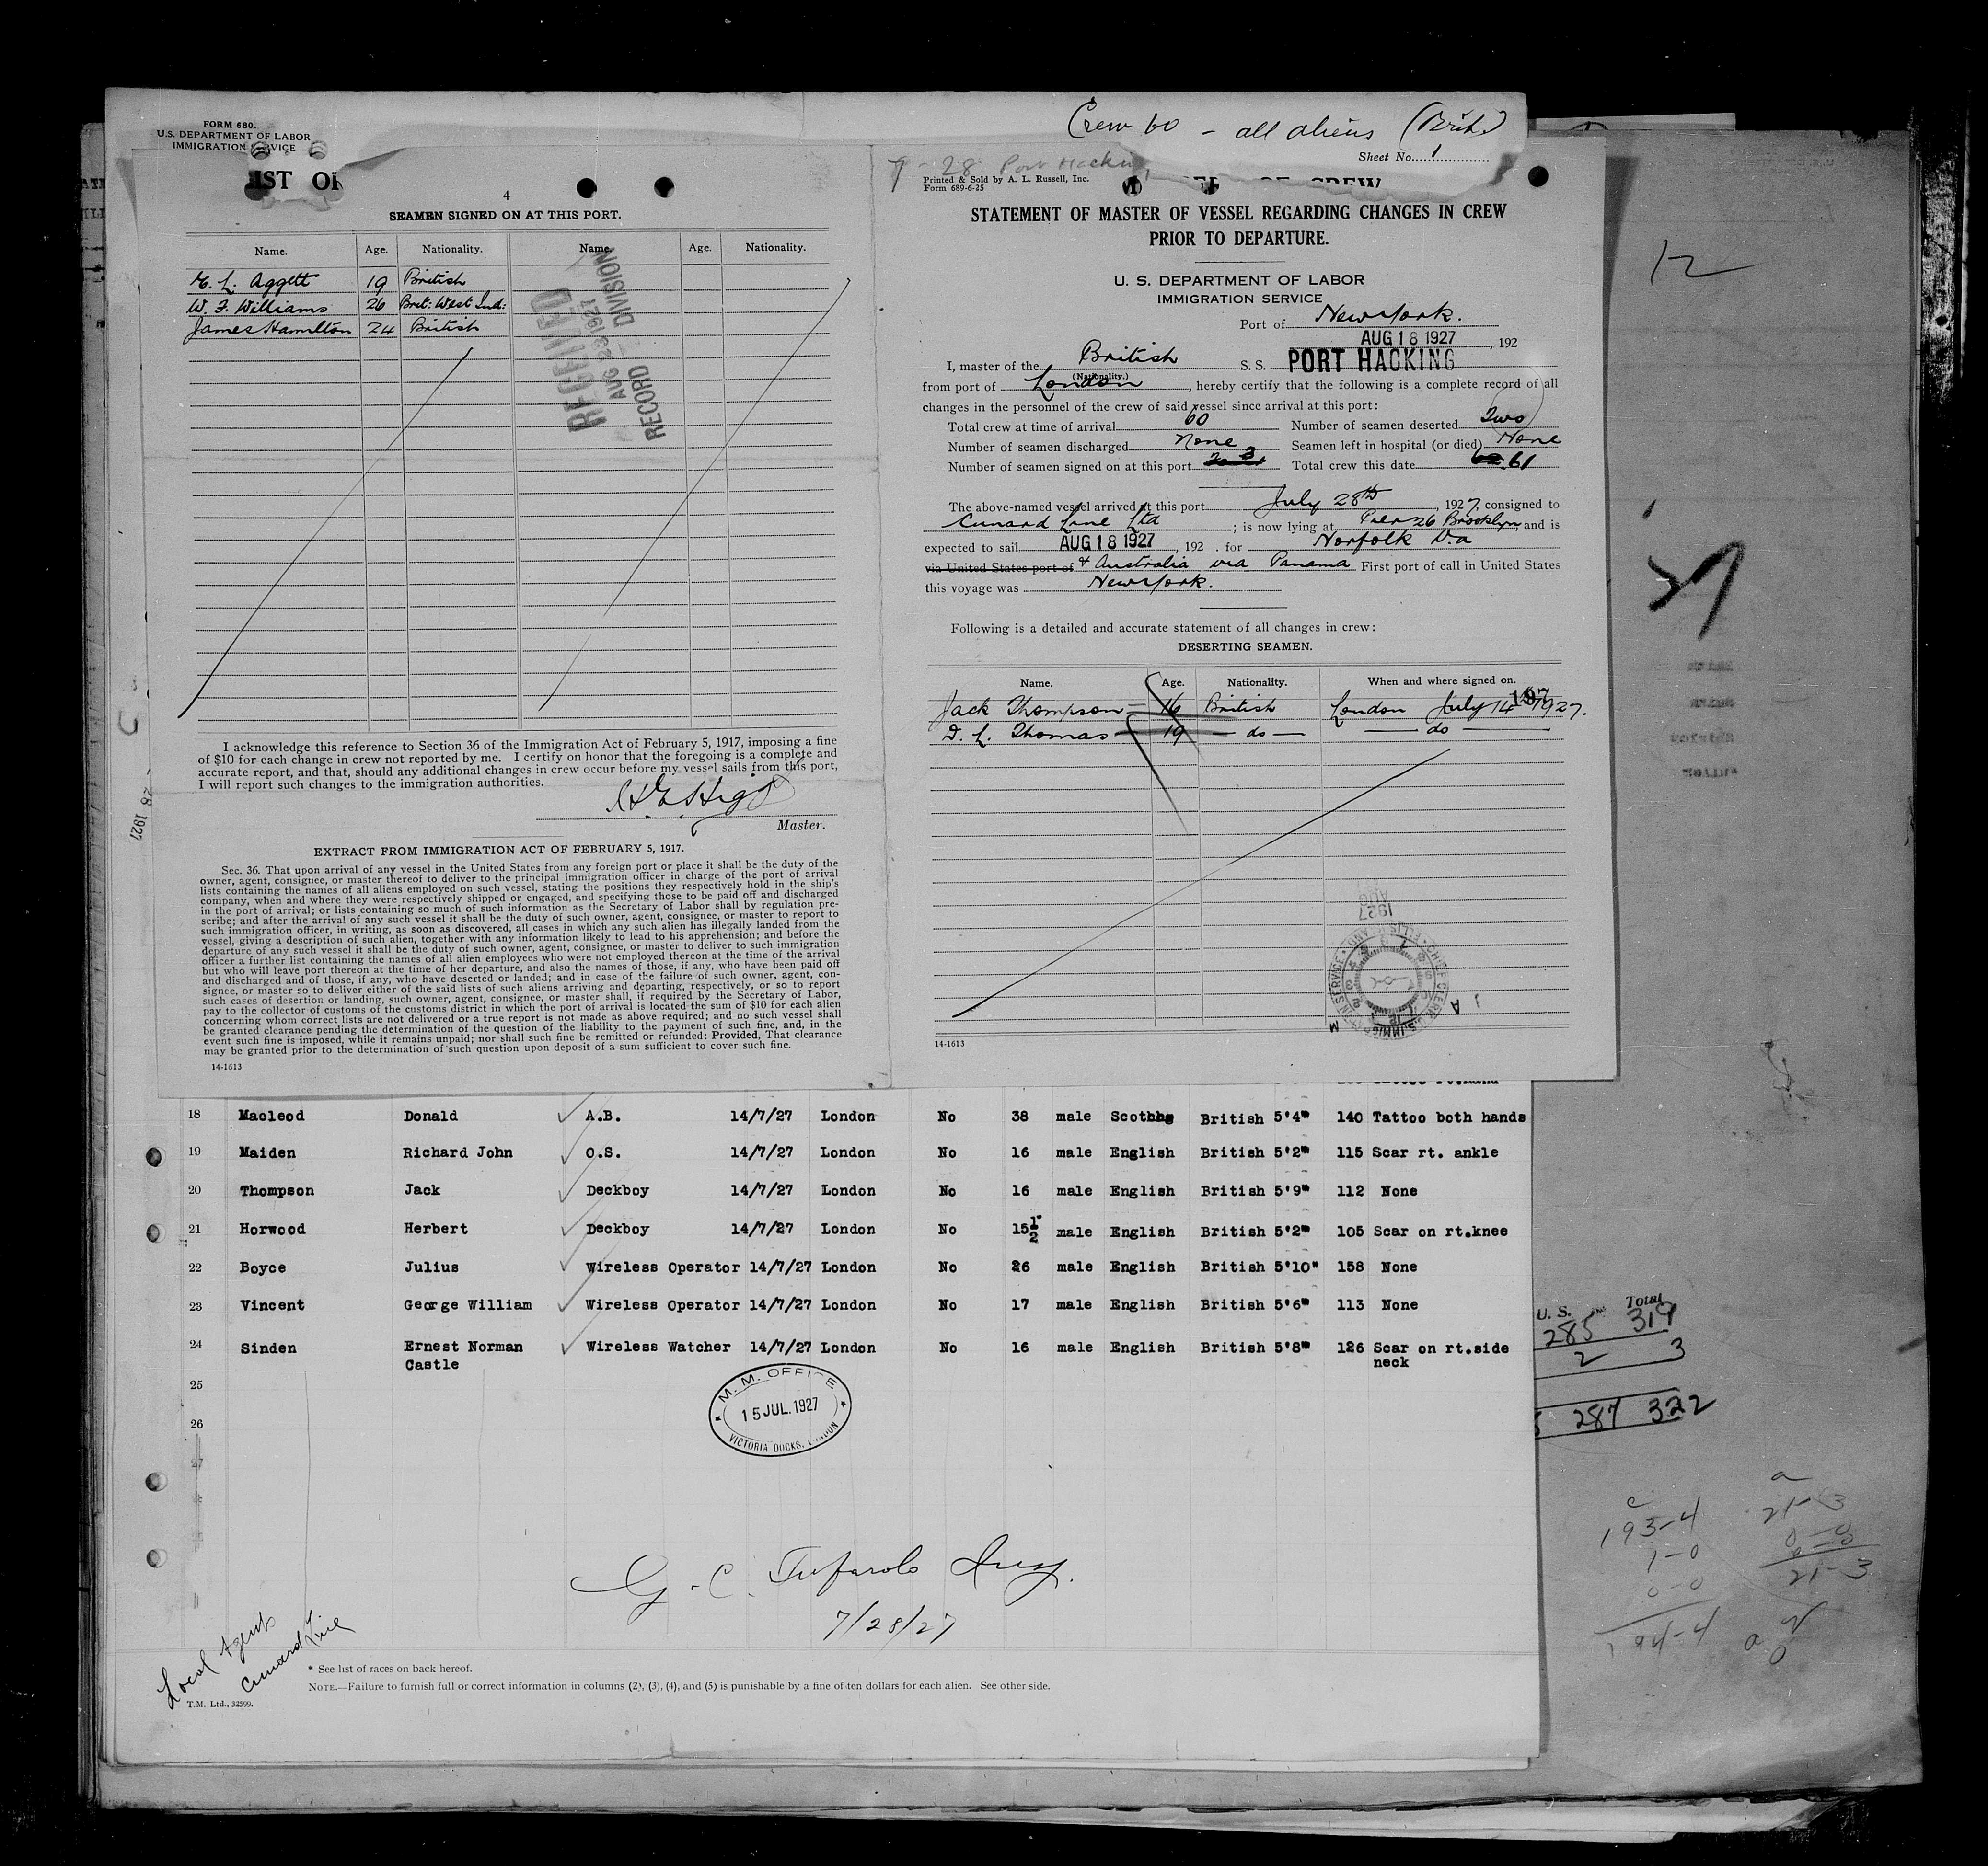 FORM 680.
U.S. DEPARTMENT OF LABOR
IMMIGRATION SERVICE
Crew 60 - all aliens (Brit.)
Sheet No. 1
IST OF
4
SEAMEN SIGNED ON AT THIS PORT.
Name. Age. Nationality. Name. Age. Nationality.
E. L. Aggett 19 British
W. F. Williams 26 Brit: West Ind:
James Hamilton 24 British
RECEIVED
AUG 23 1927
RECORD DIVISION
I acknowledge this reference to Section 36 of the Immigration Act of February 5, 1917, imposing a fine
of $10 for each change in crew not reported by me. I certify on honor that the foregoing is a complete and
accurate report, and that, should any additional changes in crew occur before my vessel sails from this port,
I will report such changes to the immigration authorities.
Master.
EXTRACT FROM IMMIGRATION ACT OF FEBRUARY 5, 1917.
Sec. 36. That upon arrival of any vessel in the United States from any foreign port or place it shall be the duty of the
owner, agent, consignee, or master thereof to deliver to the principal immigration officer in charge of the port of arrival
lists containing the names of all aliens employed on such vessel, stating the positions they respectively hold in the ship's
company, when and where they were respectively shipped or engaged, and specifying those to be paid off and discharged
in the port of arrival; or lists containing so much of such information as the Secretary of Labor shall by regulation pre-
scribe; and after the arrival of any such vessel it shall be the duty of such owner, agent, consignee, or master to report to
such immigration officer, in writing, as soon as discovered, all cases in which any such alien has illegally landed from the
vessel, giving a description of such alien, together with any information likely to lead to his apprehension; and before the
departure of any such vessel it shall be the duty of such owner, agent, consignee, or master to deliver to such immigration
officer a further list containing the names of all alien employees who were not employed thereon at the time of the arrival
but who will leave port thereon at the time of her departure, and also the names of those, if any, who have been paid off
and discharged and of those, if any, who have deserted or landed; and in case of the failure of such owner, agent, con-
signee, or master so to deliver either of the said lists of such aliens arriving and departing, respectively, or so to report
such cases of desertion or landing, such owner, agent, consignee, or master shall, if required by the Secretary of Labor,
pay to the collector of customs of the customs district in which the port of arrival is located the sum of $10 for each alien
concerning whom correct lists are not delivered or a true report is not made as above required; and no such vessel shall
be granted clearance pending the determination of the question of the liability to the payment of such fine, and, in the
event such fine is imposed, while it remains unpaid; nor shall such fine be remitted or refunded: Provided, That clearance
may be granted prior to the determination of such question upon deposit of a sum sufficient to cover such fine.
14-1613
28 1927
7-28 Port Hacking
Printed & Sold by A. L. Russell, Inc.
Form 689-6-25
OF CREW
STATEMENT OF MASTER OF VESSEL REGARDING CHANGES IN CREW
PRIOR TO DEPARTURE.
U. S. DEPARTMENT OF LABOR
IMMIGRATION SERVICE
Port of New York.
AUG 18 1927, 192
I, master of the British S. S. PORT HACKING
(Nationality.)
from port of London, hereby certify that the following is a complete record of all
changes in the personnel of the crew of said vessel since arrival at this port:
Total crew at time of arrival 60 Number of seamen deserted Two
Number of seamen discharged None Seamen left in hospital (or died) None
Number of seamen signed on at this port 3 Total crew this date 61
The above-named vessel arrived at this port July 28th, 1927, consigned to
Cunard Line Ltd; is now lying at Pier 26 Brooklyn and is
expected to sail AUG 18 1927, 192 . for Norfolk Va
via United States port of & Australia via Panama First port of call in United States
this voyage was New York.
Following is a detailed and accurate statement of all changes in crew:
DESERTING SEAMEN.
Name. Age. Nationality. When and where signed on.
197
Jack Thompson 16 British London July 14 1927.
D. L. Thomas 19 - do - - do -
1927
AUG
14-1613
18 Macleod Donald A.B. 14/7/27 London No 38 male Scotch British 5'4" 140 Tattoo both hands
19 Maiden Richard John O.S. 14/7/27 London No 16 male English British 5'2" 115 Scar rt. ankle
20 Thompson Jack Deckboy 14/7/27 London No 16 male English British 5'9" 112 None
21 Horwood Herbert Deckboy 14/7/27 London No 15½ male English British 5'2" 105 Scar on rt.knee
22 Boyce Julius Wireless Operator 14/7/27 London No 26 male English British 5'10" 158 None
23 Vincent George William Wireless Operator 14/7/27 London No 17 male English British 5'6" 113 None
24 Sinden Ernest Norman Wireless Watcher 14/7/27 London No 16 male English British 5'8" 126 Scar on rt.side
Castle neck
25
26
27
M. M. OFFICE
15 JUL. 1927
VICTORIA DOCKS, LONDON
7/28/27
Local Agents
Cunard Line
* See list of races on back hereof.
NOTE.—Failure to furnish full or correct information in columns (2), (3), (4), and (5) is punishable by a fine of ten dollars for each alien. See other side.
T.M. Ltd., 32599.
12
U. S. Total
285 319
2 3
287 322
193-4
1-0
0-0
194-4
21-3
0-0
21-3